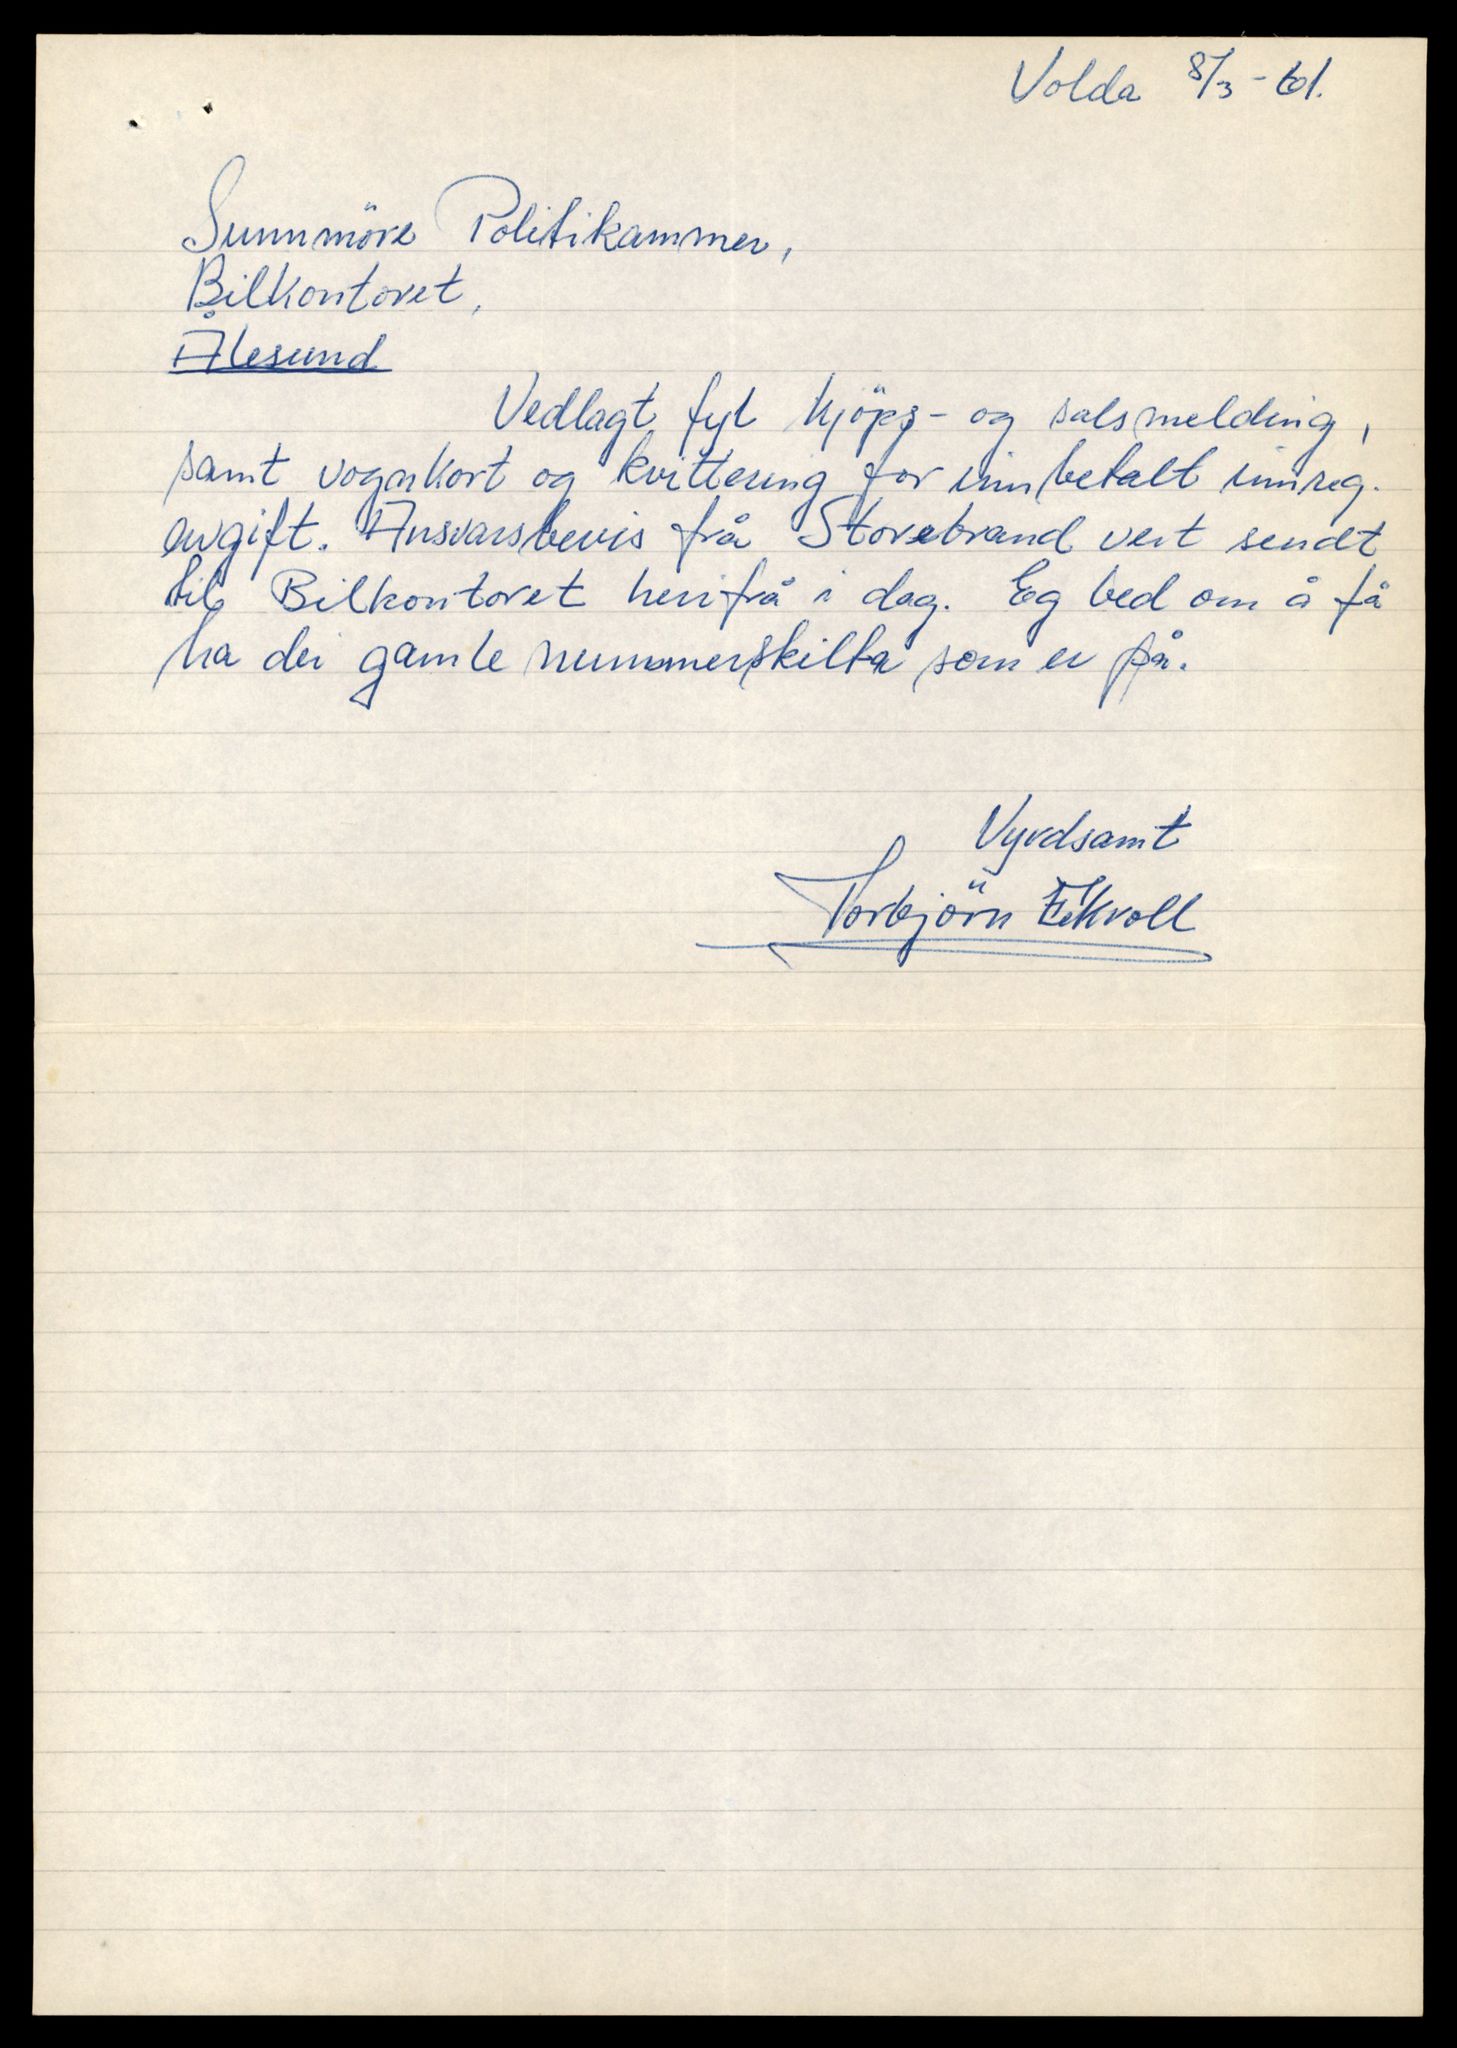 Volda 8/3-61.
Sunnmöre Politikammer,
Bilkontoret,
Ålesund
Vedlagt fyl kjöps- og salsmelding,
samt vognkort og kvittering for innbetalt innreg.
avgift. Ansvarsbevis frå Storebrand vert sendt
til Bilkontoret herifrå i dag. Eg bed om å få
ha dei gamle nummerskilta som er på.
Vyrdsamt
Torbjörn Eikvoll